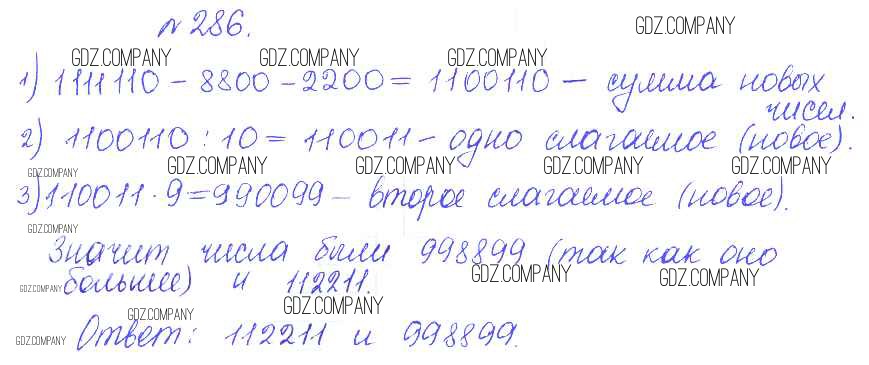 № 286.
GDZ.COMPANY
GDZ.COMPANY GDZ.COMPANY GDZ.COMPANY
1) 1111110 - 8800 - 2200 = 1100110 - сумма новых
чисел.
2) 1100110 : 10 = 110011 - одно слагаемое (новое).
GDZ.COMPANY GDZ.COMPANY GDZ.COMPANY GDZ.COMPANY GDZ.COMPANY
3) 110011 · 9 = 990099 - второе слагаемое (новое).
GDZ.COMPANY
Значит числа были 998899 (так как оно
GDZ.COMPANY GDZ.COMPANY
GDZ.COMPANY больше) и 112211.
GDZ.COMPANY
GDZ.COMPANY
GDZ.COMPANY Ответ: 112211 и 998899.